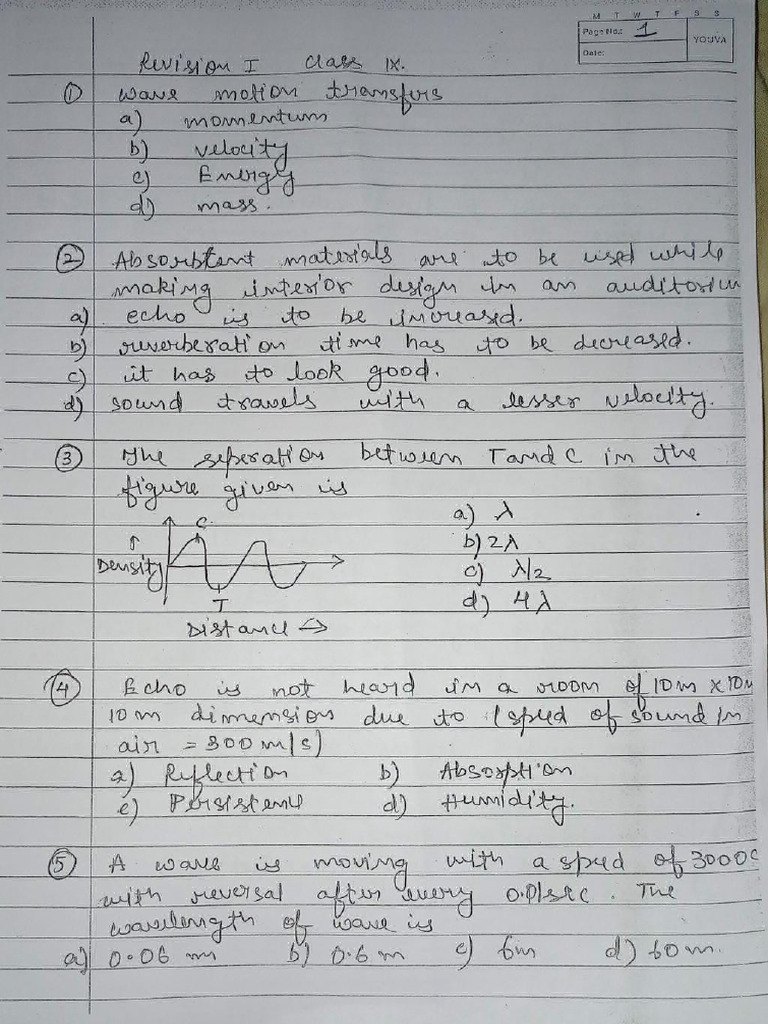 M T W T F S S
Page No.: 1
YOUVA
Date:
Revision I Class IX.
① wave motion transfers
a) momentum
b) velocity
c) Energy
d) mass.
② Absorbtent materials are to be used while
making interior design in an auditorium
a) echo is to be increased.
b) reverberation time has to be decreased.
c) it has to look good.
d) sound travels with a lesser velocity.
③ The seperation between T and C in the
figure given is
a) λ
b) 2λ
c) λ/2
d) 4λ
C
↑
Density
T
Distance →
④ Echo is not heard in a room of 10m x 10m
10m dimension due to (speed of sound in
air = 300 m/s)
a) Reflection b) Absorption
c) Persistence d) Humidity.
⑤ A wave is moving with a speed of
with reversal after every 0.01sec. The
wavelength of wave is
a) 0.06 m b) 0.6 m c) 6m d) 60 m.